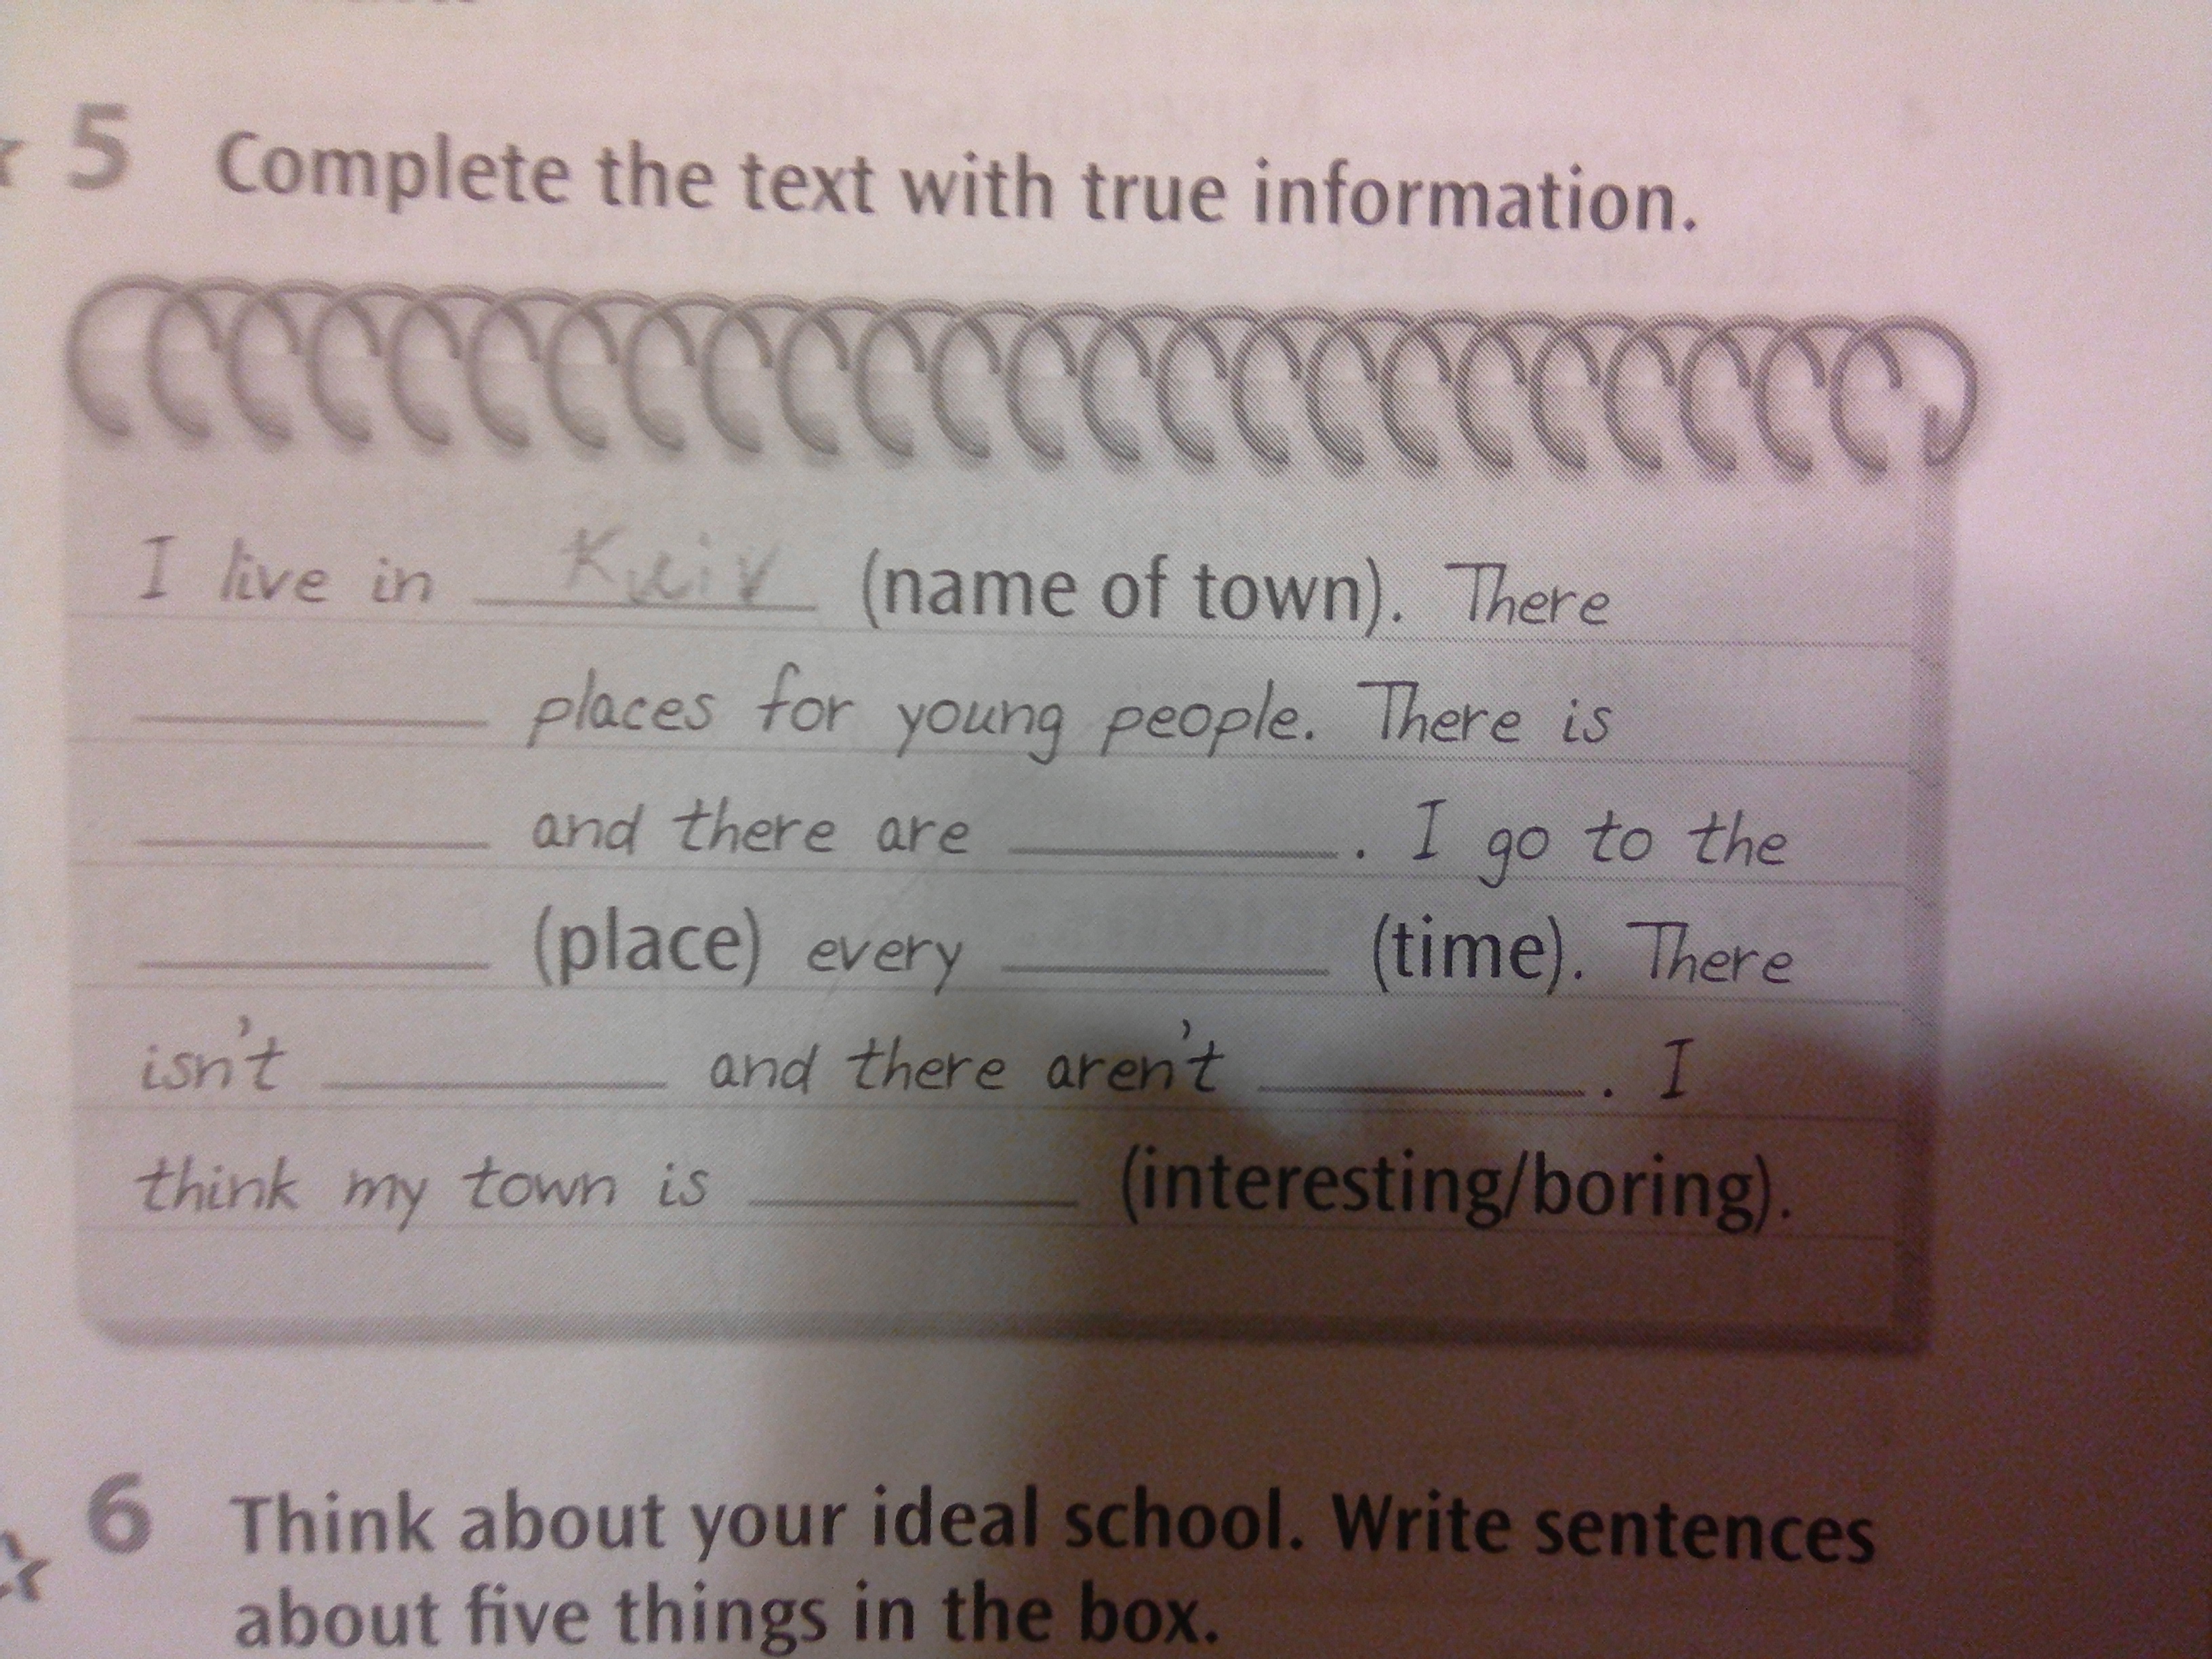 5 Complete the text with true information.
I live in Kuiv (name of town). There
places for young people. There is
and there are . I go to the
(place) every (time). There
isn't and there aren't . I
think my town is (interesting/boring).
6 Think about your ideal school. Write sentences
about five things in the box.